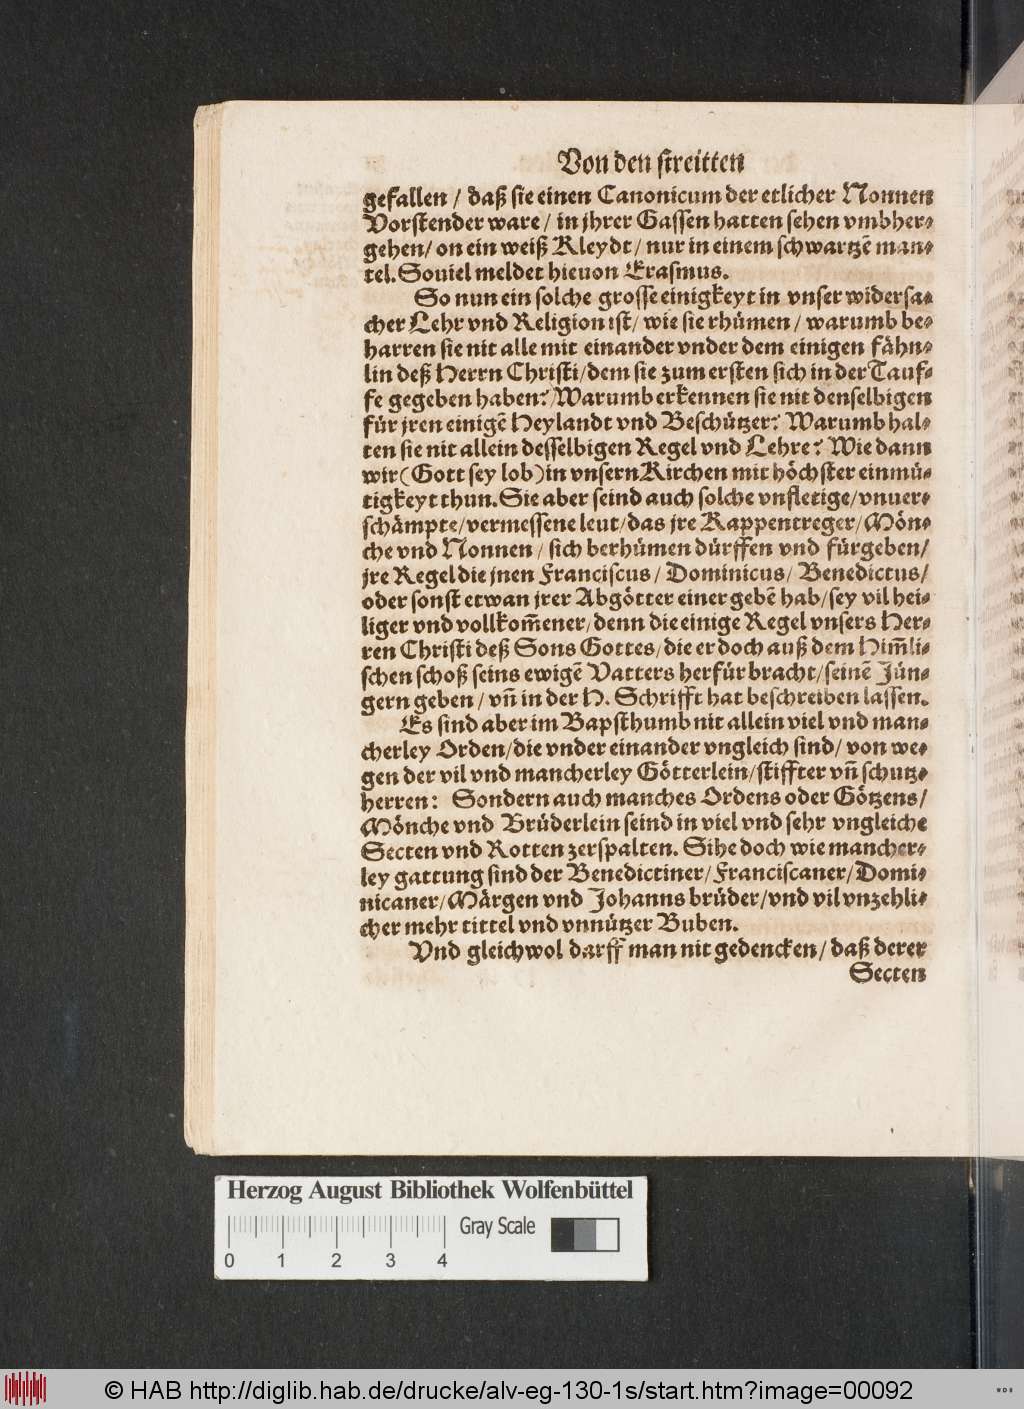 Von den streitten
gefallen / daß sie einen Canonicum der etlicher Nonnen
Vorstender ware / in jhrer Gassen hatten sehen vmbher-
gehen / on ein weiß Kleydt / nur in einem schwartzẽ man-
tel. Souiel meldet hieuon Erasmus.
So nun ein solche grosse einigkeyt in vnser widersa-
cher Lehr vnd Religion ist / wie sie rhümen / warumb be-
harren sie nit alle mit einander vnder dem einigen fähn-
lin deß Herrn Christi / dem sie zum ersten sich in der Tauf-
fe gegeben haben? Warumb erkennen sie nit denselbigen
für jren einigẽ Heylandt vnd Beschützer? Warumb hal-
ten sie nit allein desselbigen Regel vnd Lehre? Wie dann
wir (Gott sey lob) in vnsern Kirchen mit höchster einmü-
tigkeyt thun. Sie aber seind auch solche vnfletige / vnuer-
schämpte / vermessene leut / das jre Kappentreger / Mön-
che vnd Nonnen / sich berhümen dürffen vnd fürgeben /
jre Regel die jnen Franciscus / Dominicus / Benedictus /
oder sonst etwan jrer Abgötter einer gebẽ hab / sey vil hei-
liger vnd vollkom̃ener / denn die einige Regel vnsers Her-
ren Christi deß Sons Gottes / die er doch auß dem Him̃li-
schen schoß seins ewigẽ Vatters herfür bracht / seinẽ Jün-
gern geben / vñ in der H. Schrifft hat beschreiben lassen.
Es sind aber im Bapsthumb nit allein viel vnd man-
cherley Orden / die vnder einander vngleich sind / von we-
gen der vil vnd mancherley Götterlein / stiffter vñ schutz-
herren: Sondern auch manches Ordens oder Götzens /
Mönche vnd Brüderlein seind in viel vnd sehr vngleiche
Secten vnd Rotten zerspalten. Sihe doch wie mancher-
ley gattung sind der Benedictiner / Franciscaner / Domi-
nicaner / Märgen vnd Johanns brüder / vnd vil vnzehli-
cher mehr tittel vnd vnnützer Buben.
Vnd gleichwol darff man nit gedencken / daß derer
Secten
Herzog August Bibliothek Wolfenbüttel
Gray Scale
0 1 2 3 4
© HAB http://diglib.hab.de/drucke/alv-eg-130-1s/start.htm?image=00092